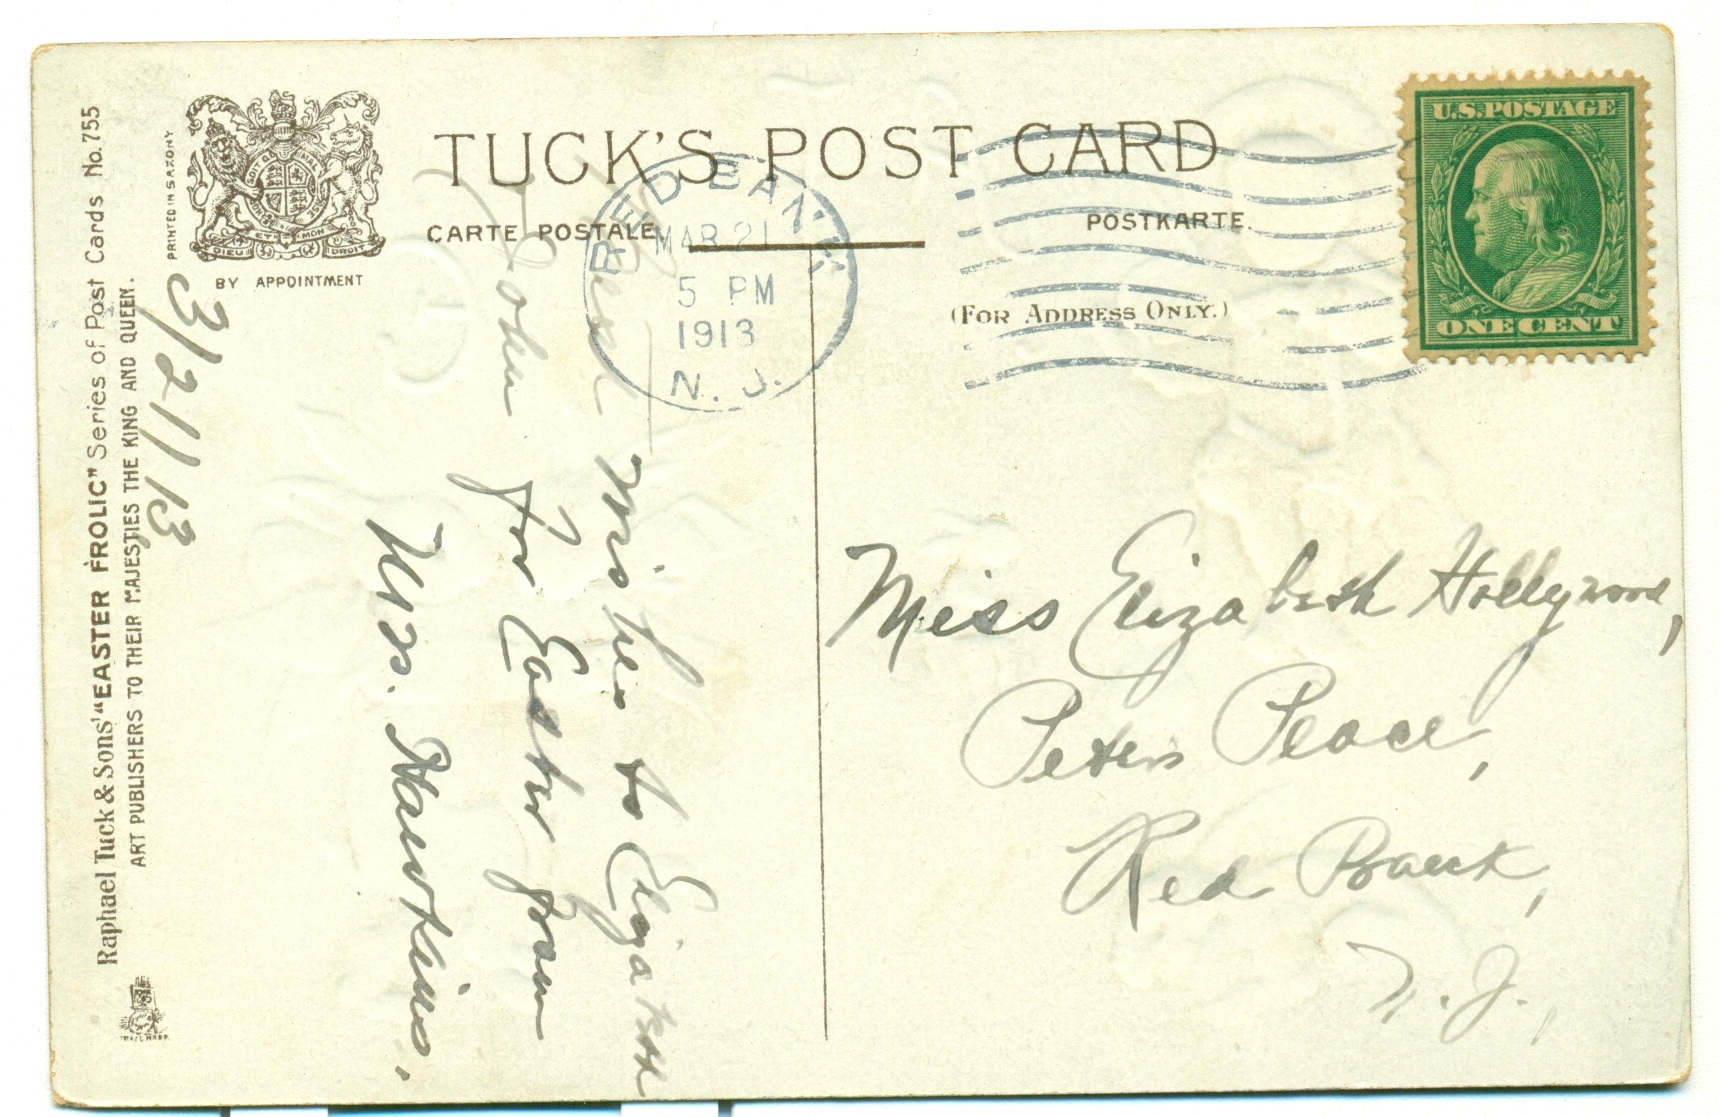 Raphael Tuck & Sons' "EASTER FROLIC" Series of Post Cards No. 755
ART PUBLISHERS TO THEIR MAJESTIES THE KING AND QUEEN.
PRINTED IN SAXONY
HONI SOIT QUI MAL Y PENSE
DIEU ET MON DROIT
BY APPOINTMENT
TRADE MARK
TUCK'S POST CARD
CARTE POSTALE
POSTKARTE.
(FOR ADDRESS ONLY.)
RED BANK
MAR 21
5 PM
1913
N. J.
U.S. POSTAGE
ONE CENT
3/21/13
Best Wishes to Elizabeth
John for Easter from
Mrs. Hawkins.
Miss Elizabeth Hollywood,
Peters Place,
Red Bank,
N. J.,